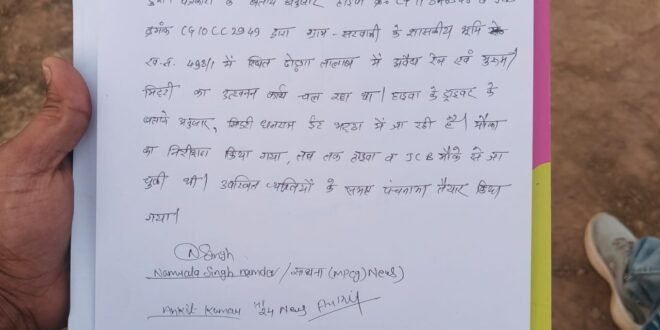 द्वारा ग्राम - सरवानी के शासकीय भूमि
क्रमांक CG10CC2949
ख.नं. 498/1 में स्थित ढोढ़गा तालाब में अवैध रेत एवं मुरूम
मिट्टी का उत्खनन कार्य चल रहा था। हाइवा के ड्राइवर के
बताये अनुसार, मिट्टी धनराज ईंट भट्ठा में जा रही है। मौका
का निरीक्षण किया गया, तब तक हाइवा व JCB मौके से जा
चुकी थी। उपस्थित व्यक्तियों के समक्ष पंचनामा तैयार किया
गया।
NSingh
Namrata Singh namdev / साधना (MPCG) News)
Ankit Kumar 24 News